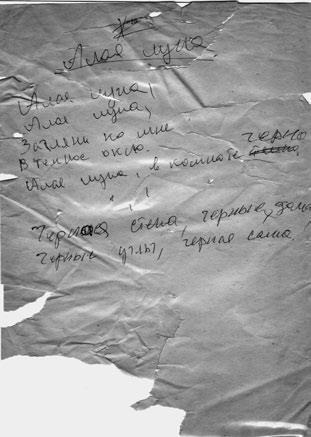 Алая луна
Алая луна,
Алая луна,
Загляни ко мне
В темное окно.
Алая луна, в комнате черно
" , !
Черная стена, черные дома,
Черные углы, черная сама